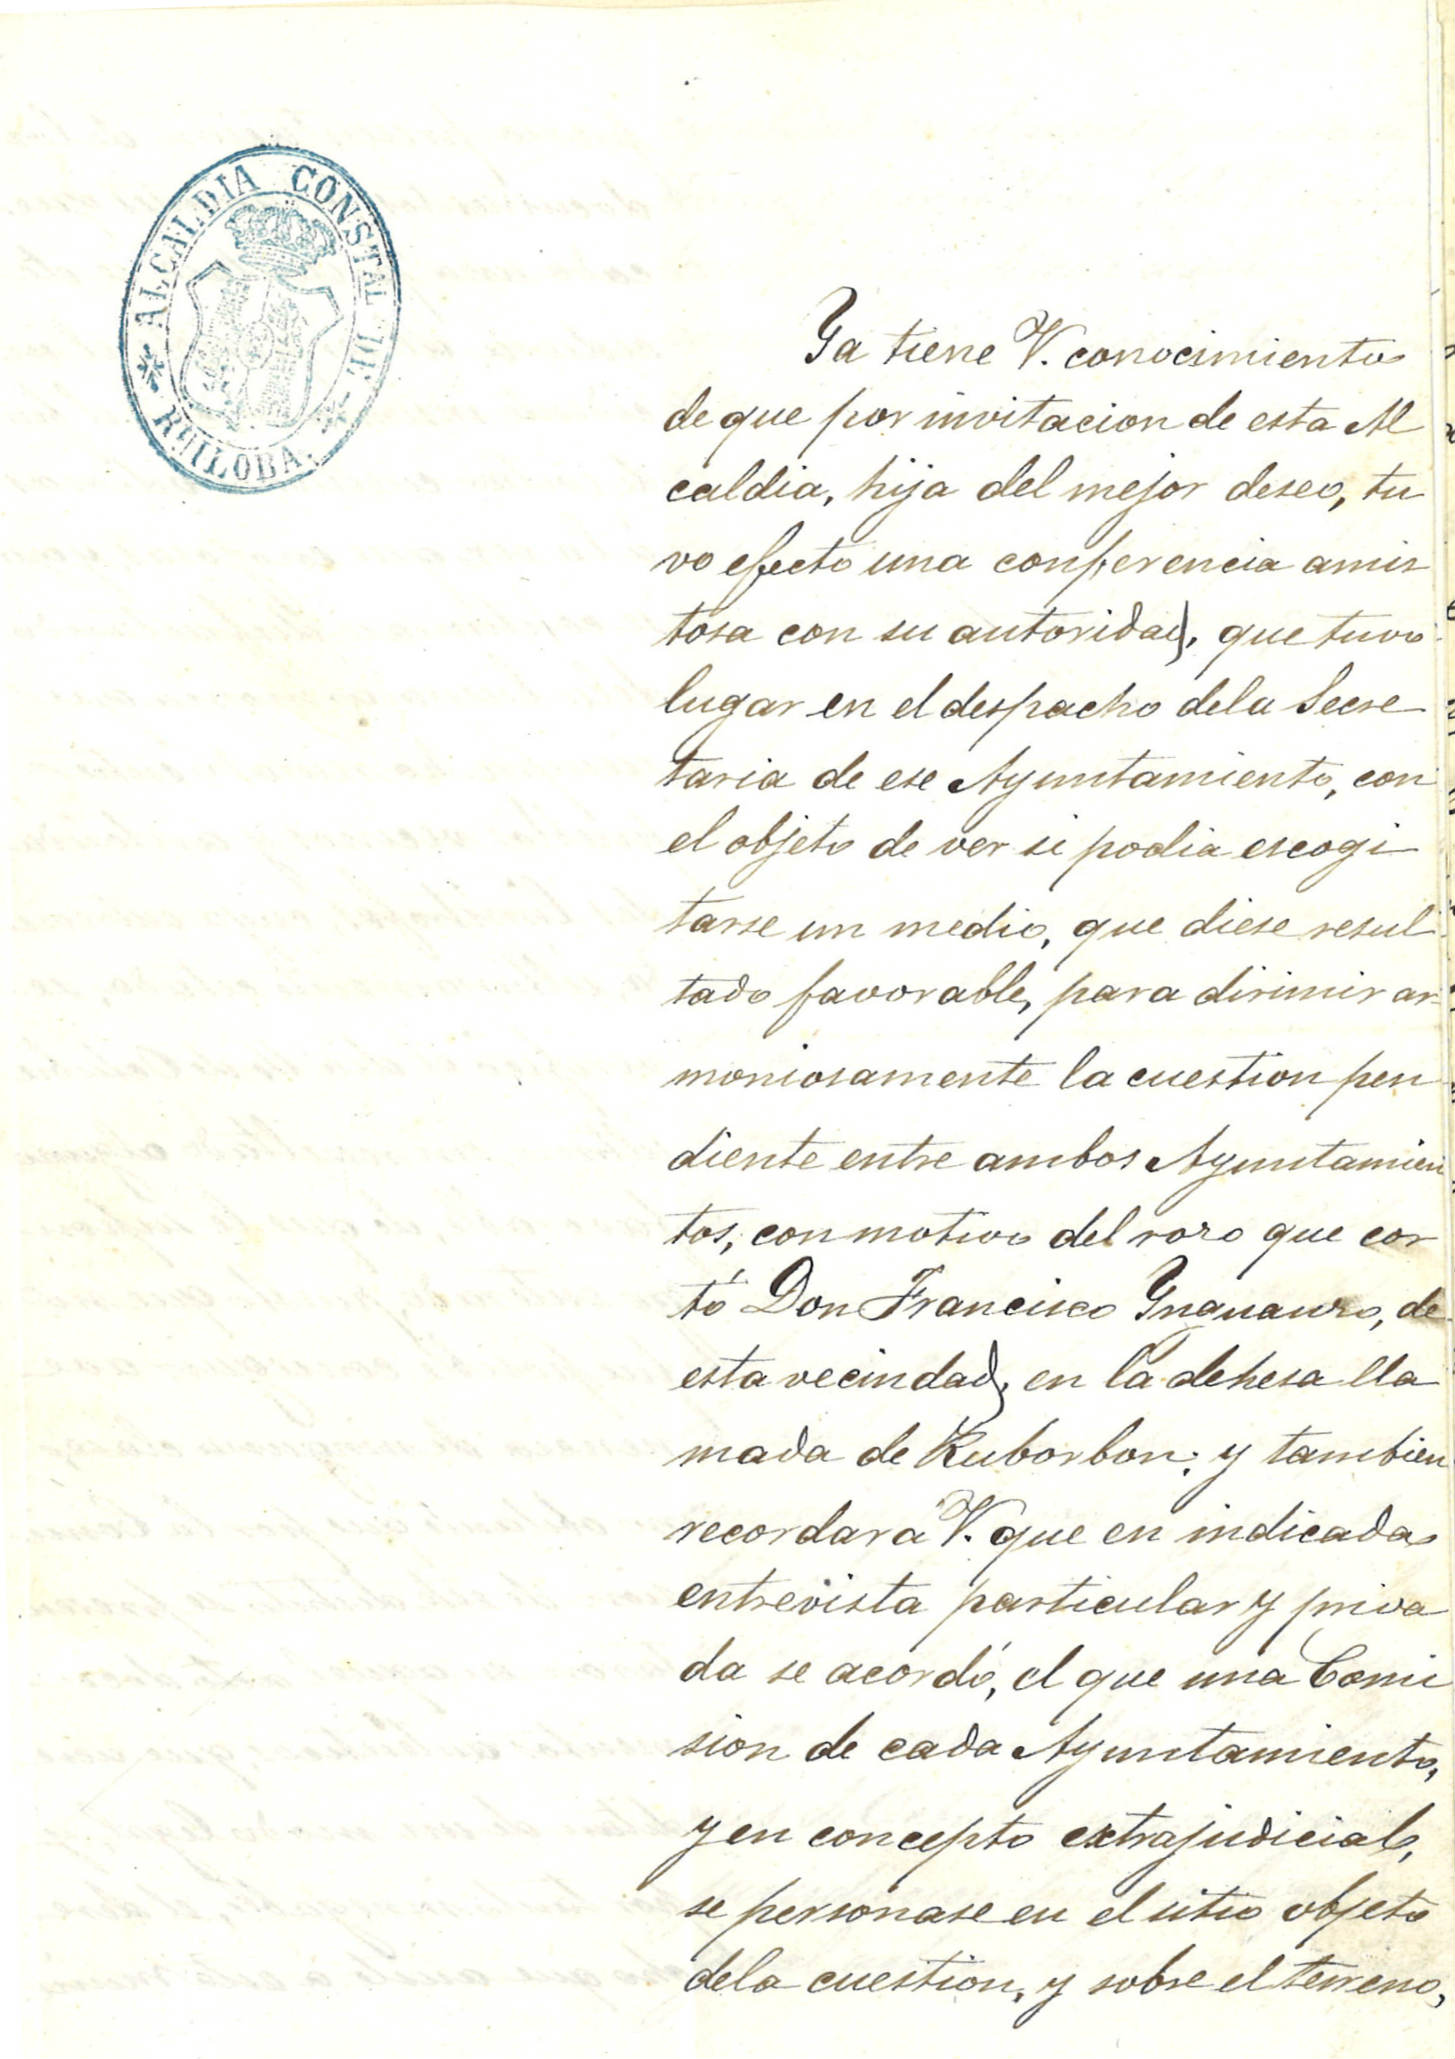 ALCALDIA CONSTAL DE
RUILOBA
Ya tiene V. conocimiento
de que por invitacion de esta Al
caldia, hija del mejor deseo, tu
vo efecto una conferencia amis
tosa con su autoridad, que tuvo
lugar en el despacho dela Secre
taria de ese Ayuntamiento, con
el objeto de ver si podia escogi
tarse un medio, que diese resul
tado favorable, para dirimir ar
moniosamente la cuestion pen
diente entre ambos Ayuntamien
tos, con motivo del rozo que cor
tó Don Francisco, de
esta vecindad, en la dehesa lla
mada de Ruborbon; y tambien
recordará V. que en indicada
entrevista particular y priva
da se acordó, el que una Comi
sion de cada Ayuntamiento,
y en concepto extrajudicial,
se personase en el sitio objeto
dela cuestion, y sobre el terreno,